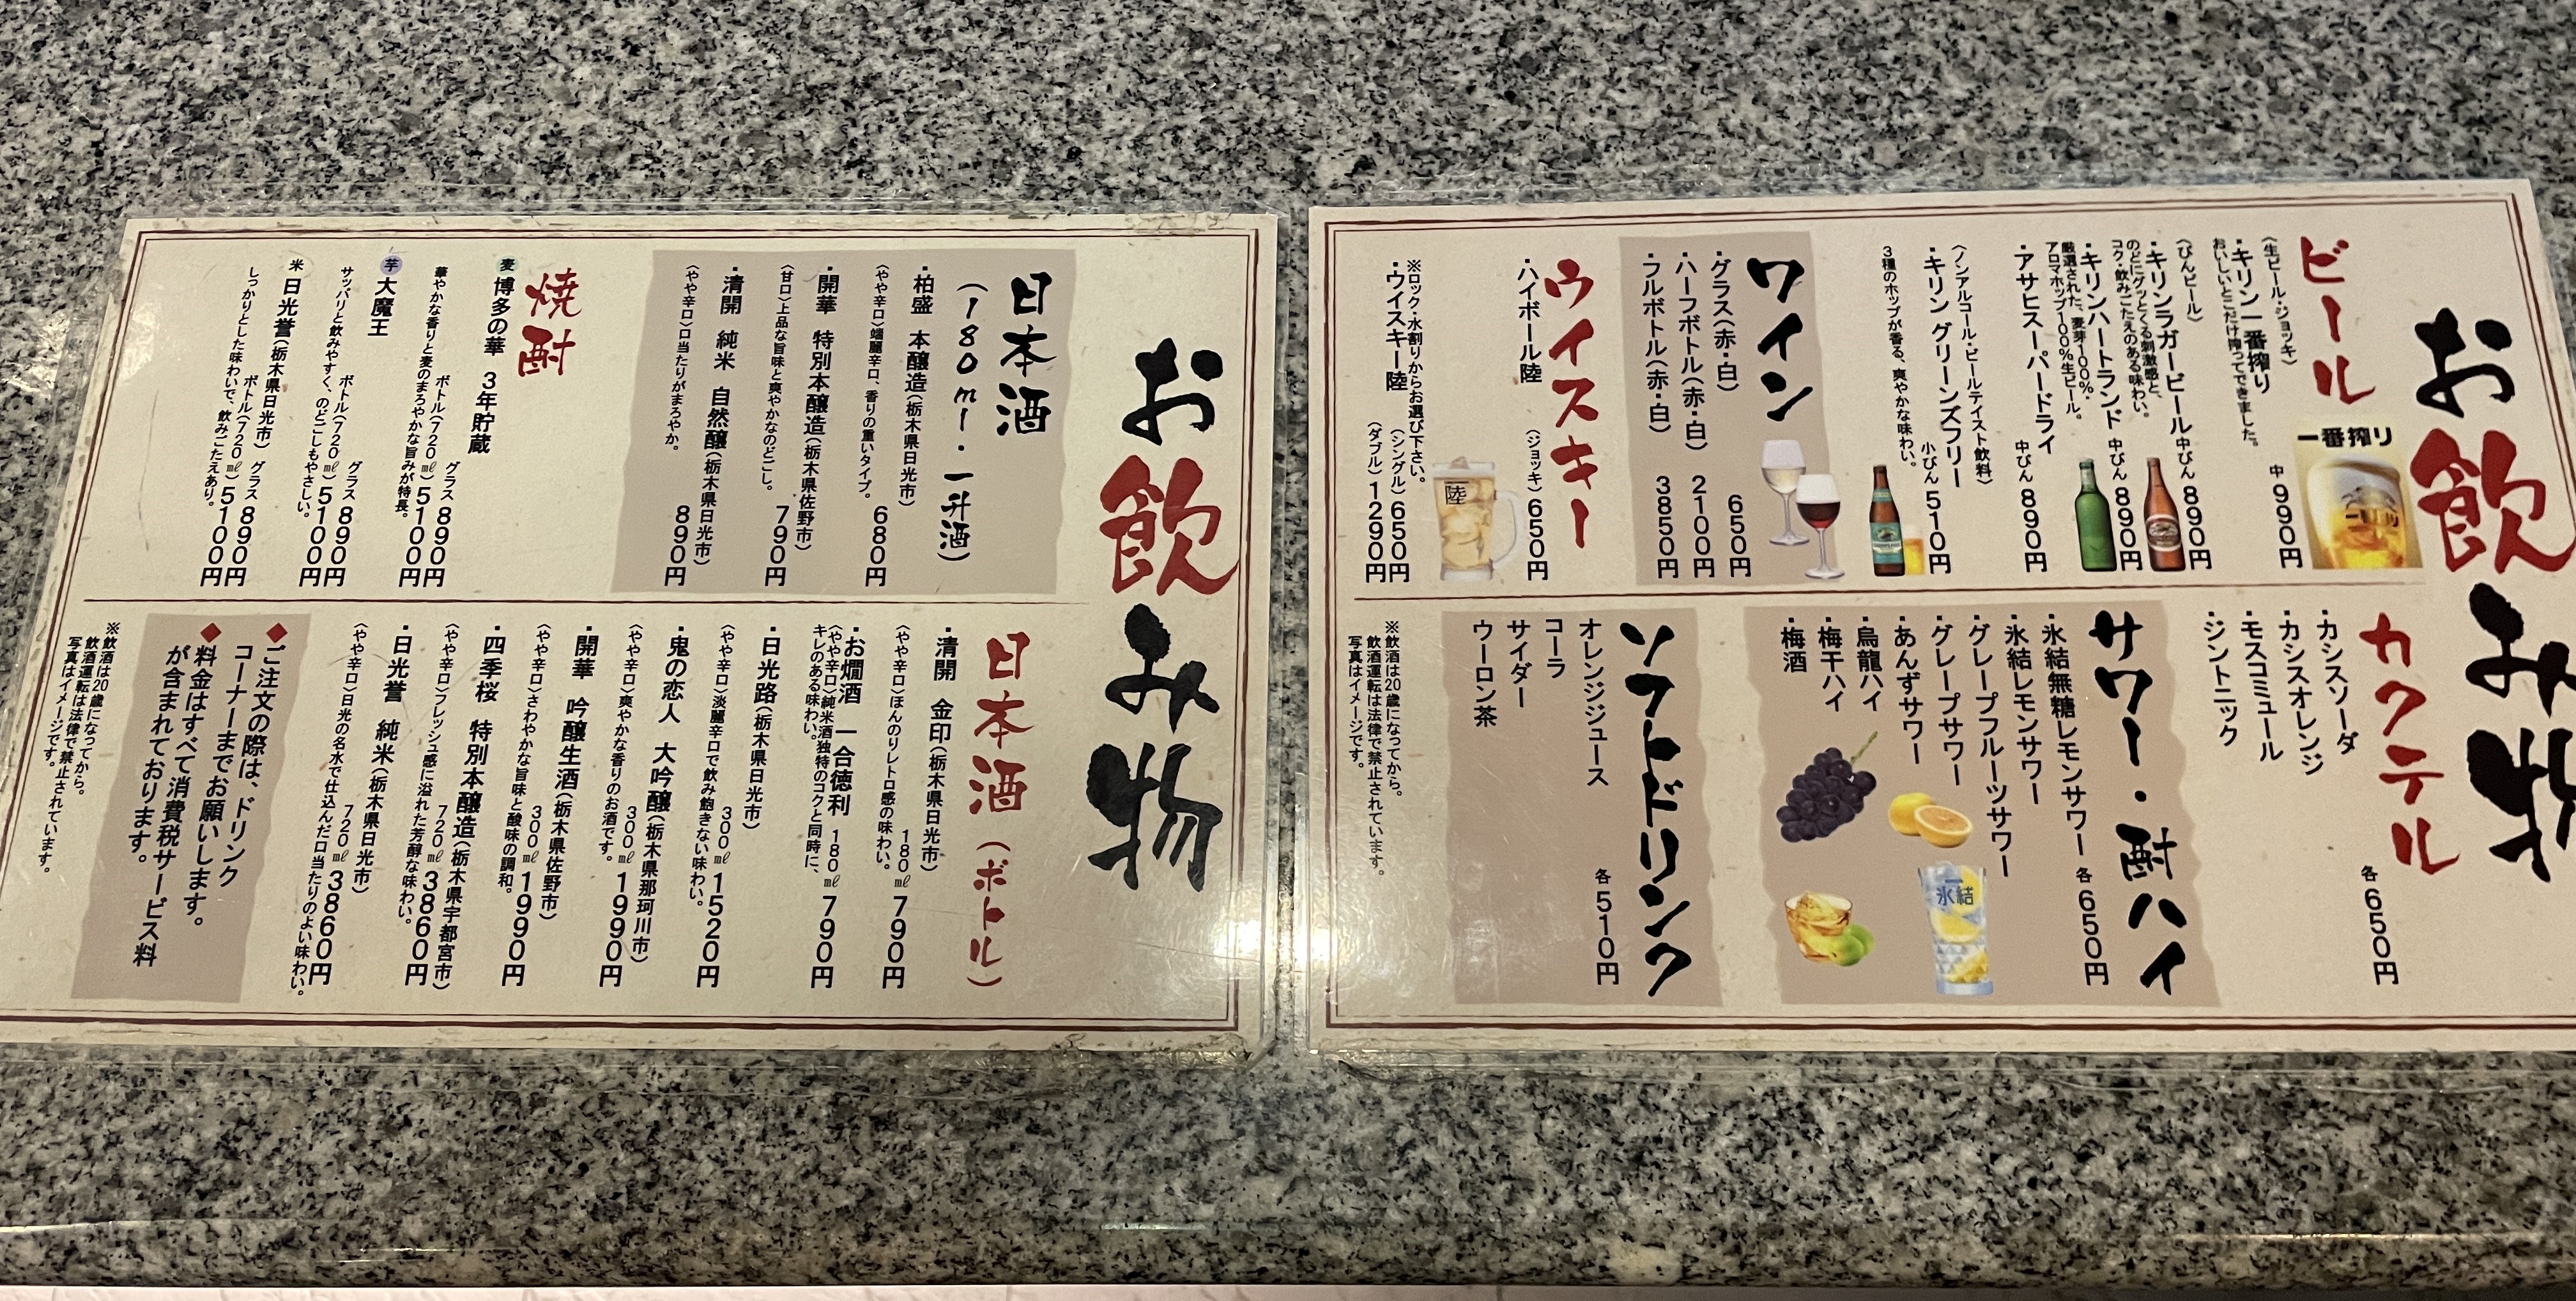 お飲み物
ビール
〈生ビール・ジョッキ〉
・キリン一番搾り 中 990円
おいしいとこだけ搾ってできました。
一番搾り
〈びんビール〉
・キリンラガービール 中びん 890円
のどにグッとくる刺激感と、
コク・飲みごたえのある味わい。
・キリンハートランド 中びん 890円
厳選された、麦芽100%・
アロマホップ100%生ビール。
・アサヒスーパードライ 中びん 890円
〈ノンアルコール・ビールテイスト飲料〉
・キリン グリーンズフリー 小びん 510円
3種のホップが香る、爽やかな味わい。
ワイン
・グラス(赤・白) 650円
・ハーフボトル(赤・白) 2100円
・フルボトル(赤・白) 3850円
ウイスキー
・ハイボール陸 (ジョッキ) 650円
陸
※ロック・水割りからお選び下さい。
・ウイスキー陸 (シングル) 650円
(ダブル) 1290円
カクテル 各 650円
・カシスソーダ
・カシスオレンジ
・モスコミュール
・ジントニック
サワー・酎ハイ
各 650円
・氷結無糖レモンサワー
・氷結レモンサワー
・グレープフルーツサワー
・グレープサワー
・あんずサワー
・烏龍ハイ
・梅干ハイ
・梅酒
氷結
ソフトドリンク
各 510円
オレンジジュース
コーラ
サイダー
ウーロン茶
※飲酒は20歳になってから。
飲酒運転は法律で禁止されています。
写真はイメージです。
お飲み物
日本酒
(180ml・一升酒)
・柏盛 本醸造(栃木県日光市) 680円
〈やや辛口〉端麗辛口、香りの重いタイプ。
・開華 特別本醸造(栃木県佐野市) 790円
〈甘口〉上品な旨味と爽やかなのどごし。
・清開 純米 自然醸(栃木県日光市) 890円
〈やや辛口〉口当たりがまろやか。
焼酎
麦 博多の華 3年貯蔵
グラス 890円
ボトル(720㎖) 5100円
華やかな香りと麦のまろやかな旨みが特長。
芋 大魔王
グラス 890円
ボトル(720㎖) 5100円
サッパリと飲みやすく、のどごしもやさしい。
米 日光誉(栃木県日光市)
グラス 890円
ボトル(720㎖) 5100円
しっかりとした味わいで、飲みごたえあり。
日本酒(ボトル)
・清開 金印(栃木県日光市)
180㎖ 790円
〈やや辛口〉ほんのりレトロ感の味わい。
・お燗酒 一合徳利 180㎖ 790円
〈やや辛口〉純米酒独特のコクと同時に、
キレのある味わい。
・日光路(栃木県日光市)
300㎖ 1520円
〈やや辛口〉淡麗辛口で飲み飽きない味わい。
・鬼の恋人 大吟醸(栃木県那珂川市)
300㎖ 1990円
〈やや辛口〉爽やかな香りのお酒です。
・開華 吟醸生酒(栃木県佐野市)
300㎖ 1990円
〈やや辛口〉さわやかな旨味と酸味の調和。
・四季桜 特別本醸造(栃木県宇都宮市)
720㎖ 3860円
〈やや辛口〉フレッシュ感に溢れた芳醇な味わい。
・日光誉 純米(栃木県日光市)
720㎖ 3860円
〈やや辛口〉日光の名水で仕込んだ口当たりのよい味わい。
◆ご注文の際は、ドリンク
コーナーまでお願いします。
◆料金はすべて消費税サービス料
が含まれております。
※飲酒は20歳になってから。
飲酒運転は法律で禁止されています。
写真はイメージです。